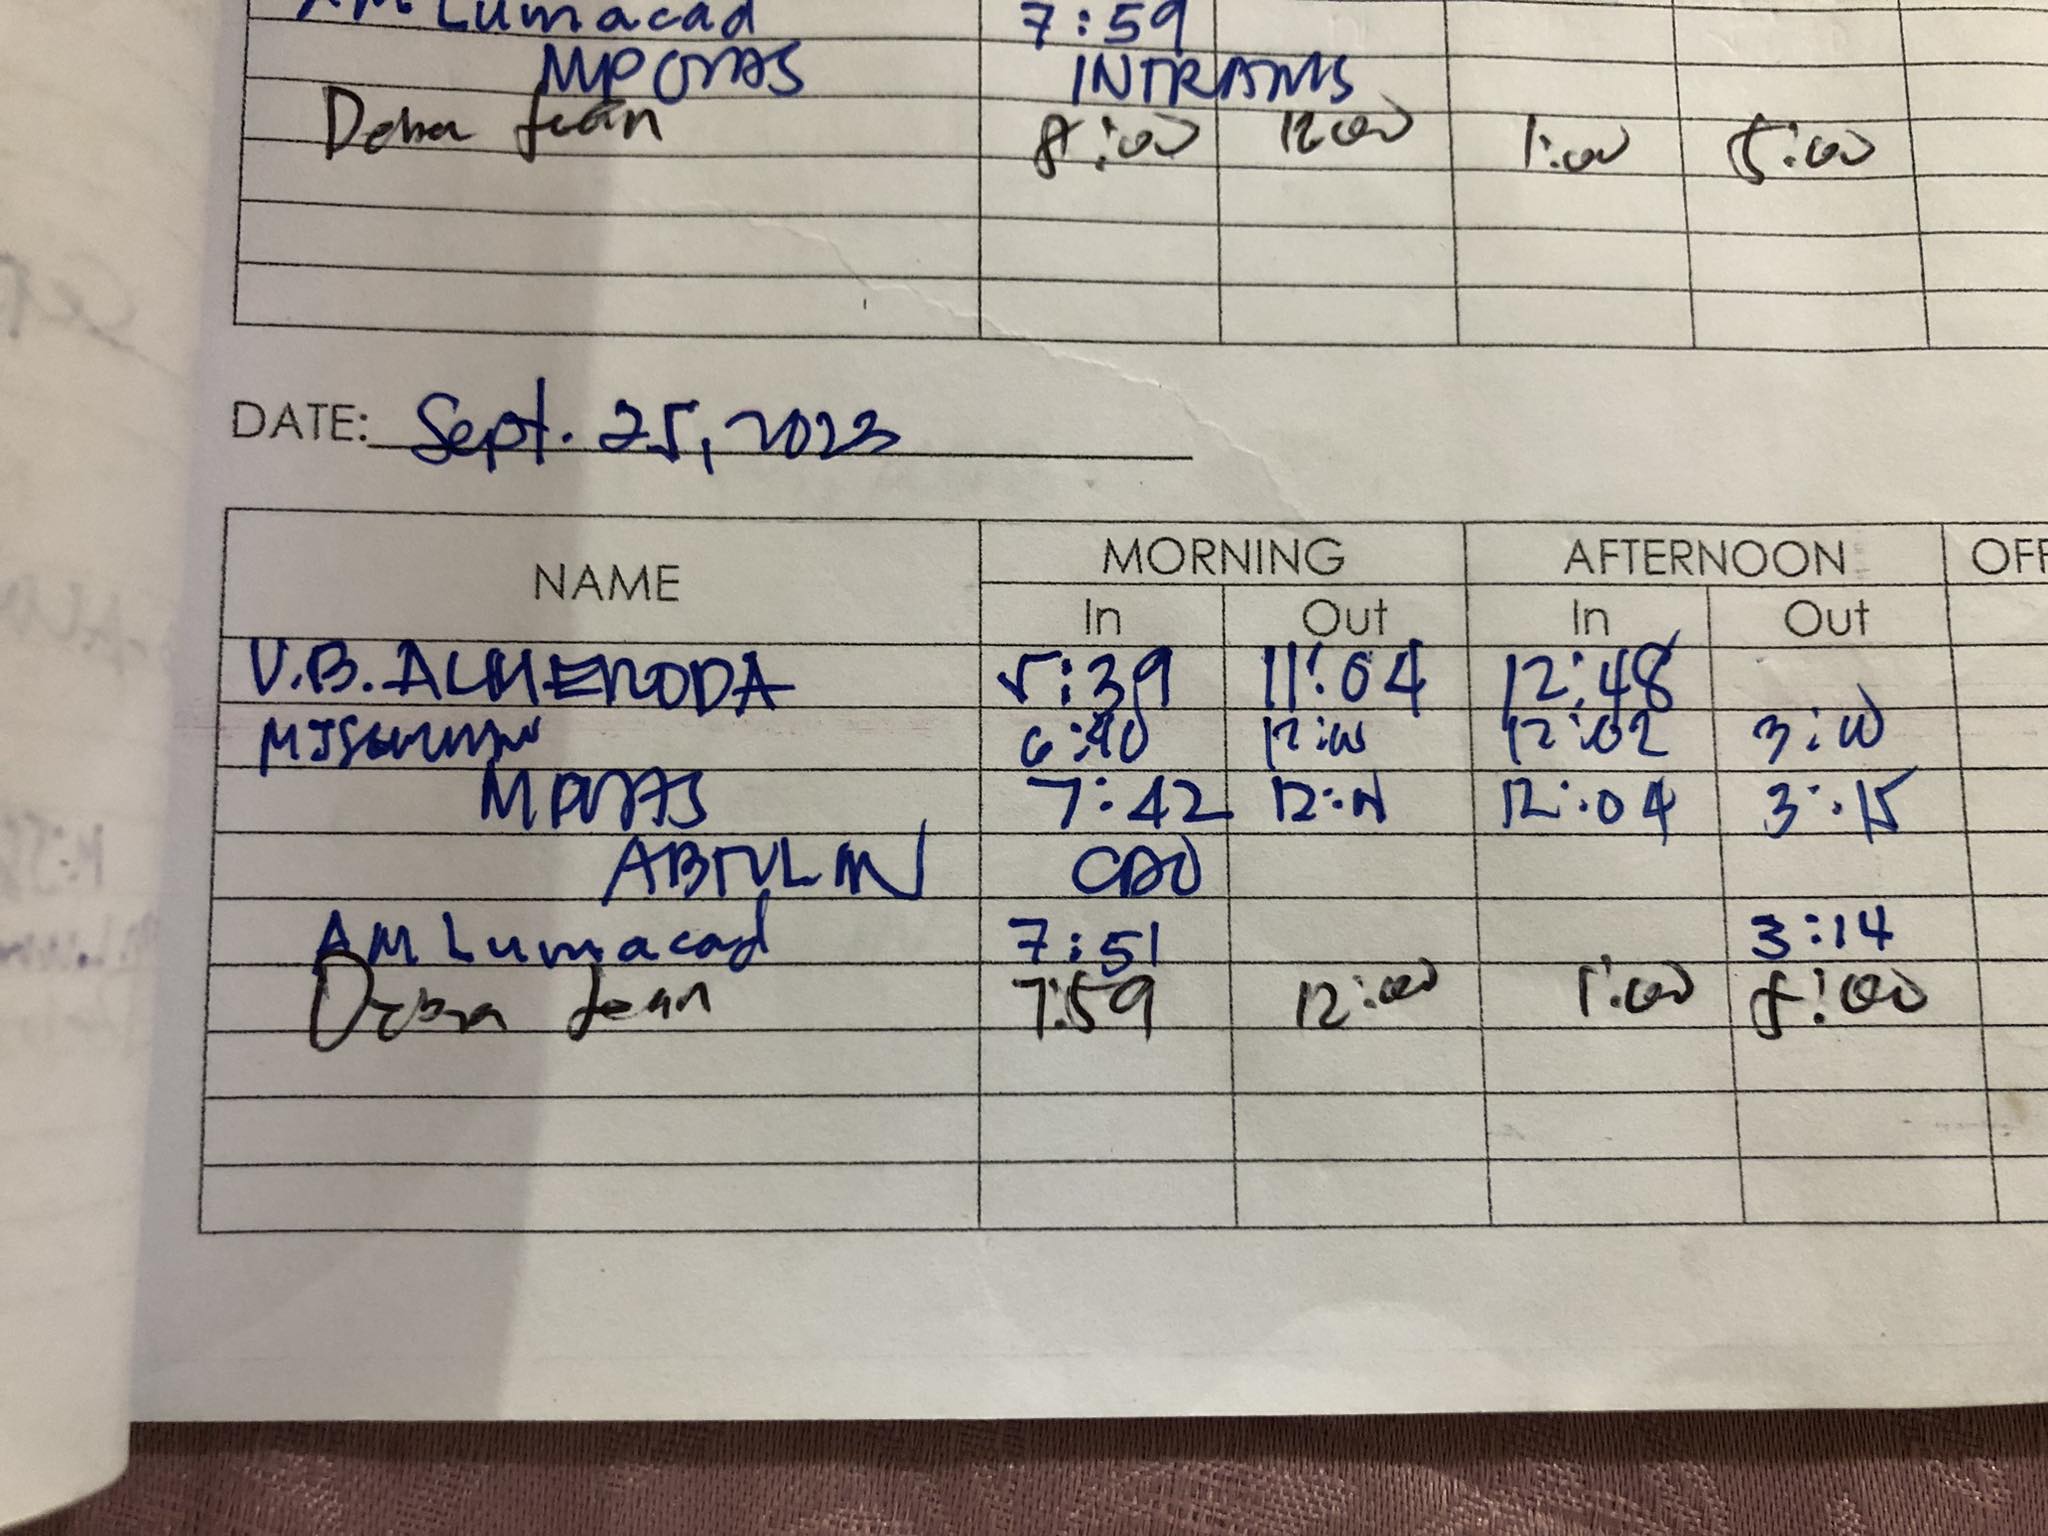 AM Lumacad 7:59
INTRAMS
Debra Jean 8:00 12:00 1:00 5:00
DATE: Sept. 25, 2023
NAME MORNING AFTERNOON OFF
In Out In Out
V.B. ALMENODA 5:39 11:04 12:48
6:40 12:00 12:02 3:00
7:42 12:04 3:15
CDO
AM Lumacad 7:51 3:14
Debra Jean 7:59 12:00 1:00 5:00